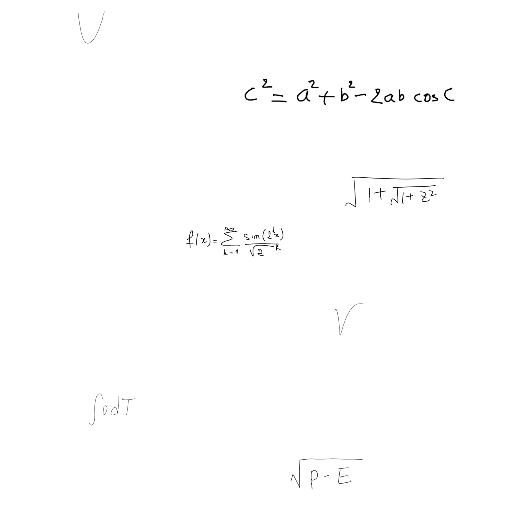 ∪
c² = a² + b² - 2ab cos C
√(1 + √(1 + z²))
f(x) = ∑_{k=1}^{∞} sin(2^k x) / √2^{-k}
√
∫ v dT
√(P - E)